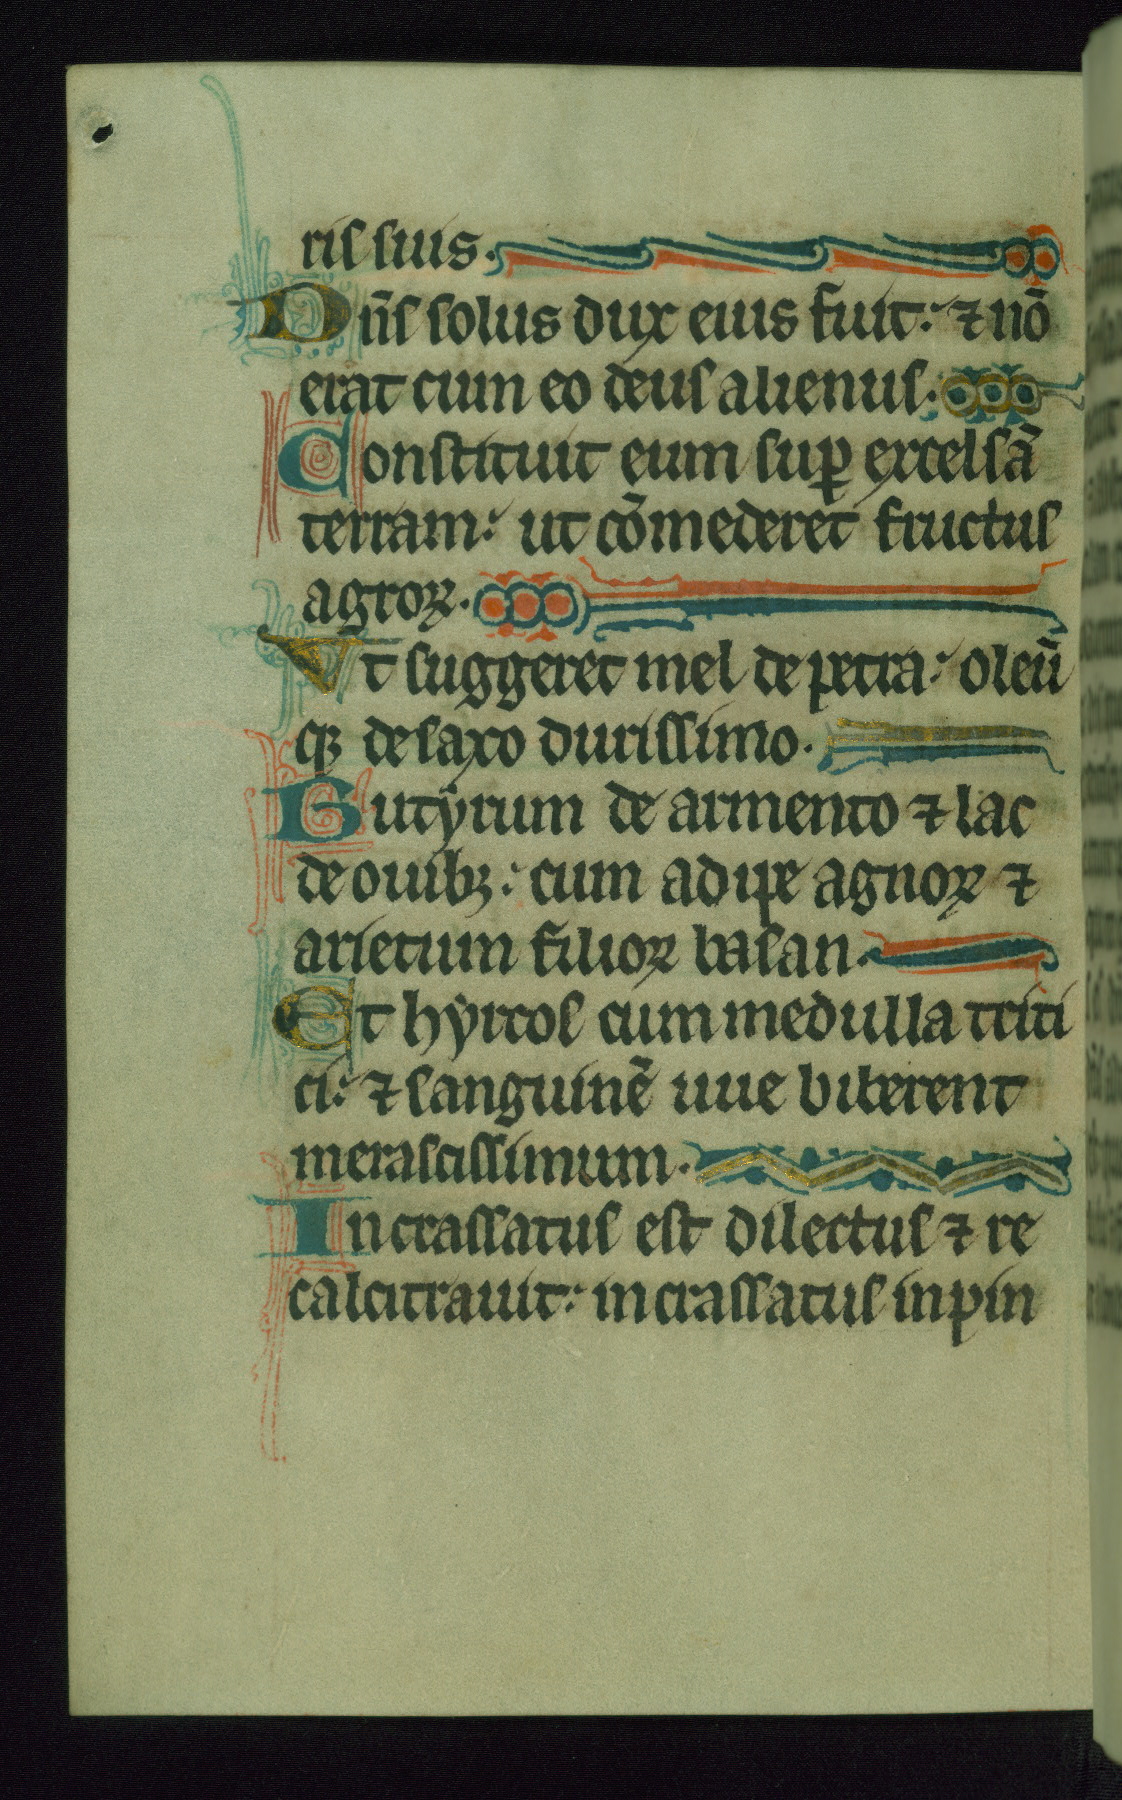 ris suis.
Dn̄s solus dux eius fuit: ⁊ nō
erat cum eo deus alienus.
Constituit eum suꝑ excelsā
terram: ut cōmederet fructus
agroꝝ.
Vt suggeret mel de petra: oleū
qꝫ de saxo durissimo.
Butẏrum de armento ⁊ lac
de ouibꝫ: cum adipe agnoꝝ ⁊
arietum filioꝝ basan.
Et hẏrcos cum medulla triti
ci: ⁊ sanguinē uue biberent
meracissimum.
Incrassatus est dilectus ⁊ re
calcitrauit: incrassatus inpin